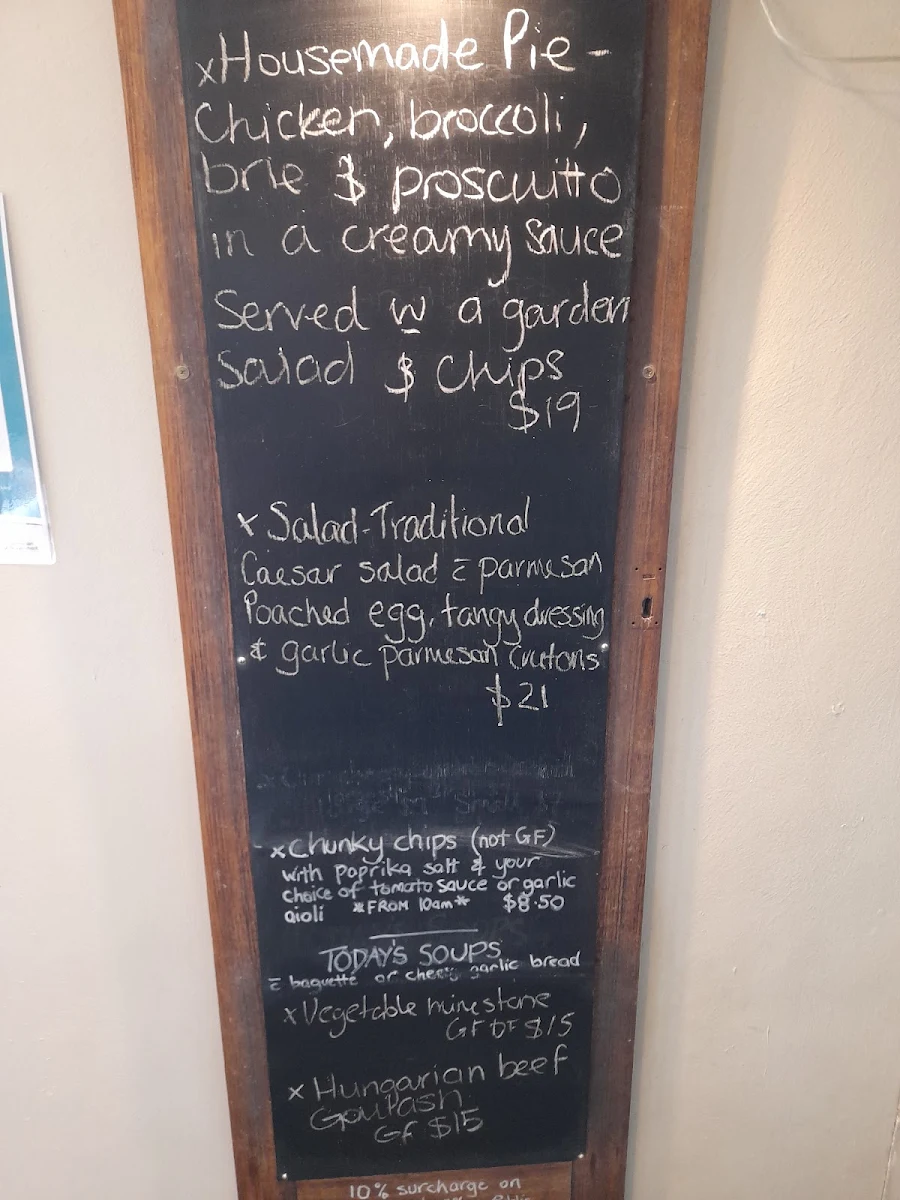 xHousemade Pie -
Chicken, broccoli,
brie & proscuitto
in a creamy sauce
Served w a garden
Salad & Chips
$19
x Salad-Traditional
Caesar salad c̄ parmesan
Poached egg, tangy dressing
& garlic parmesan crutons
$21
x Chunky chips (not GF)
with paprika salt & your
choice of tomato sauce or garlic
aioli *FROM 10am* $8.50
TODAY'S SOUPS
c̄ baguette or cheesy garlic bread
x Vegetable minestone
GF DF $15
x Hungarian beef
Goulash
GF $15
10% surcharge on